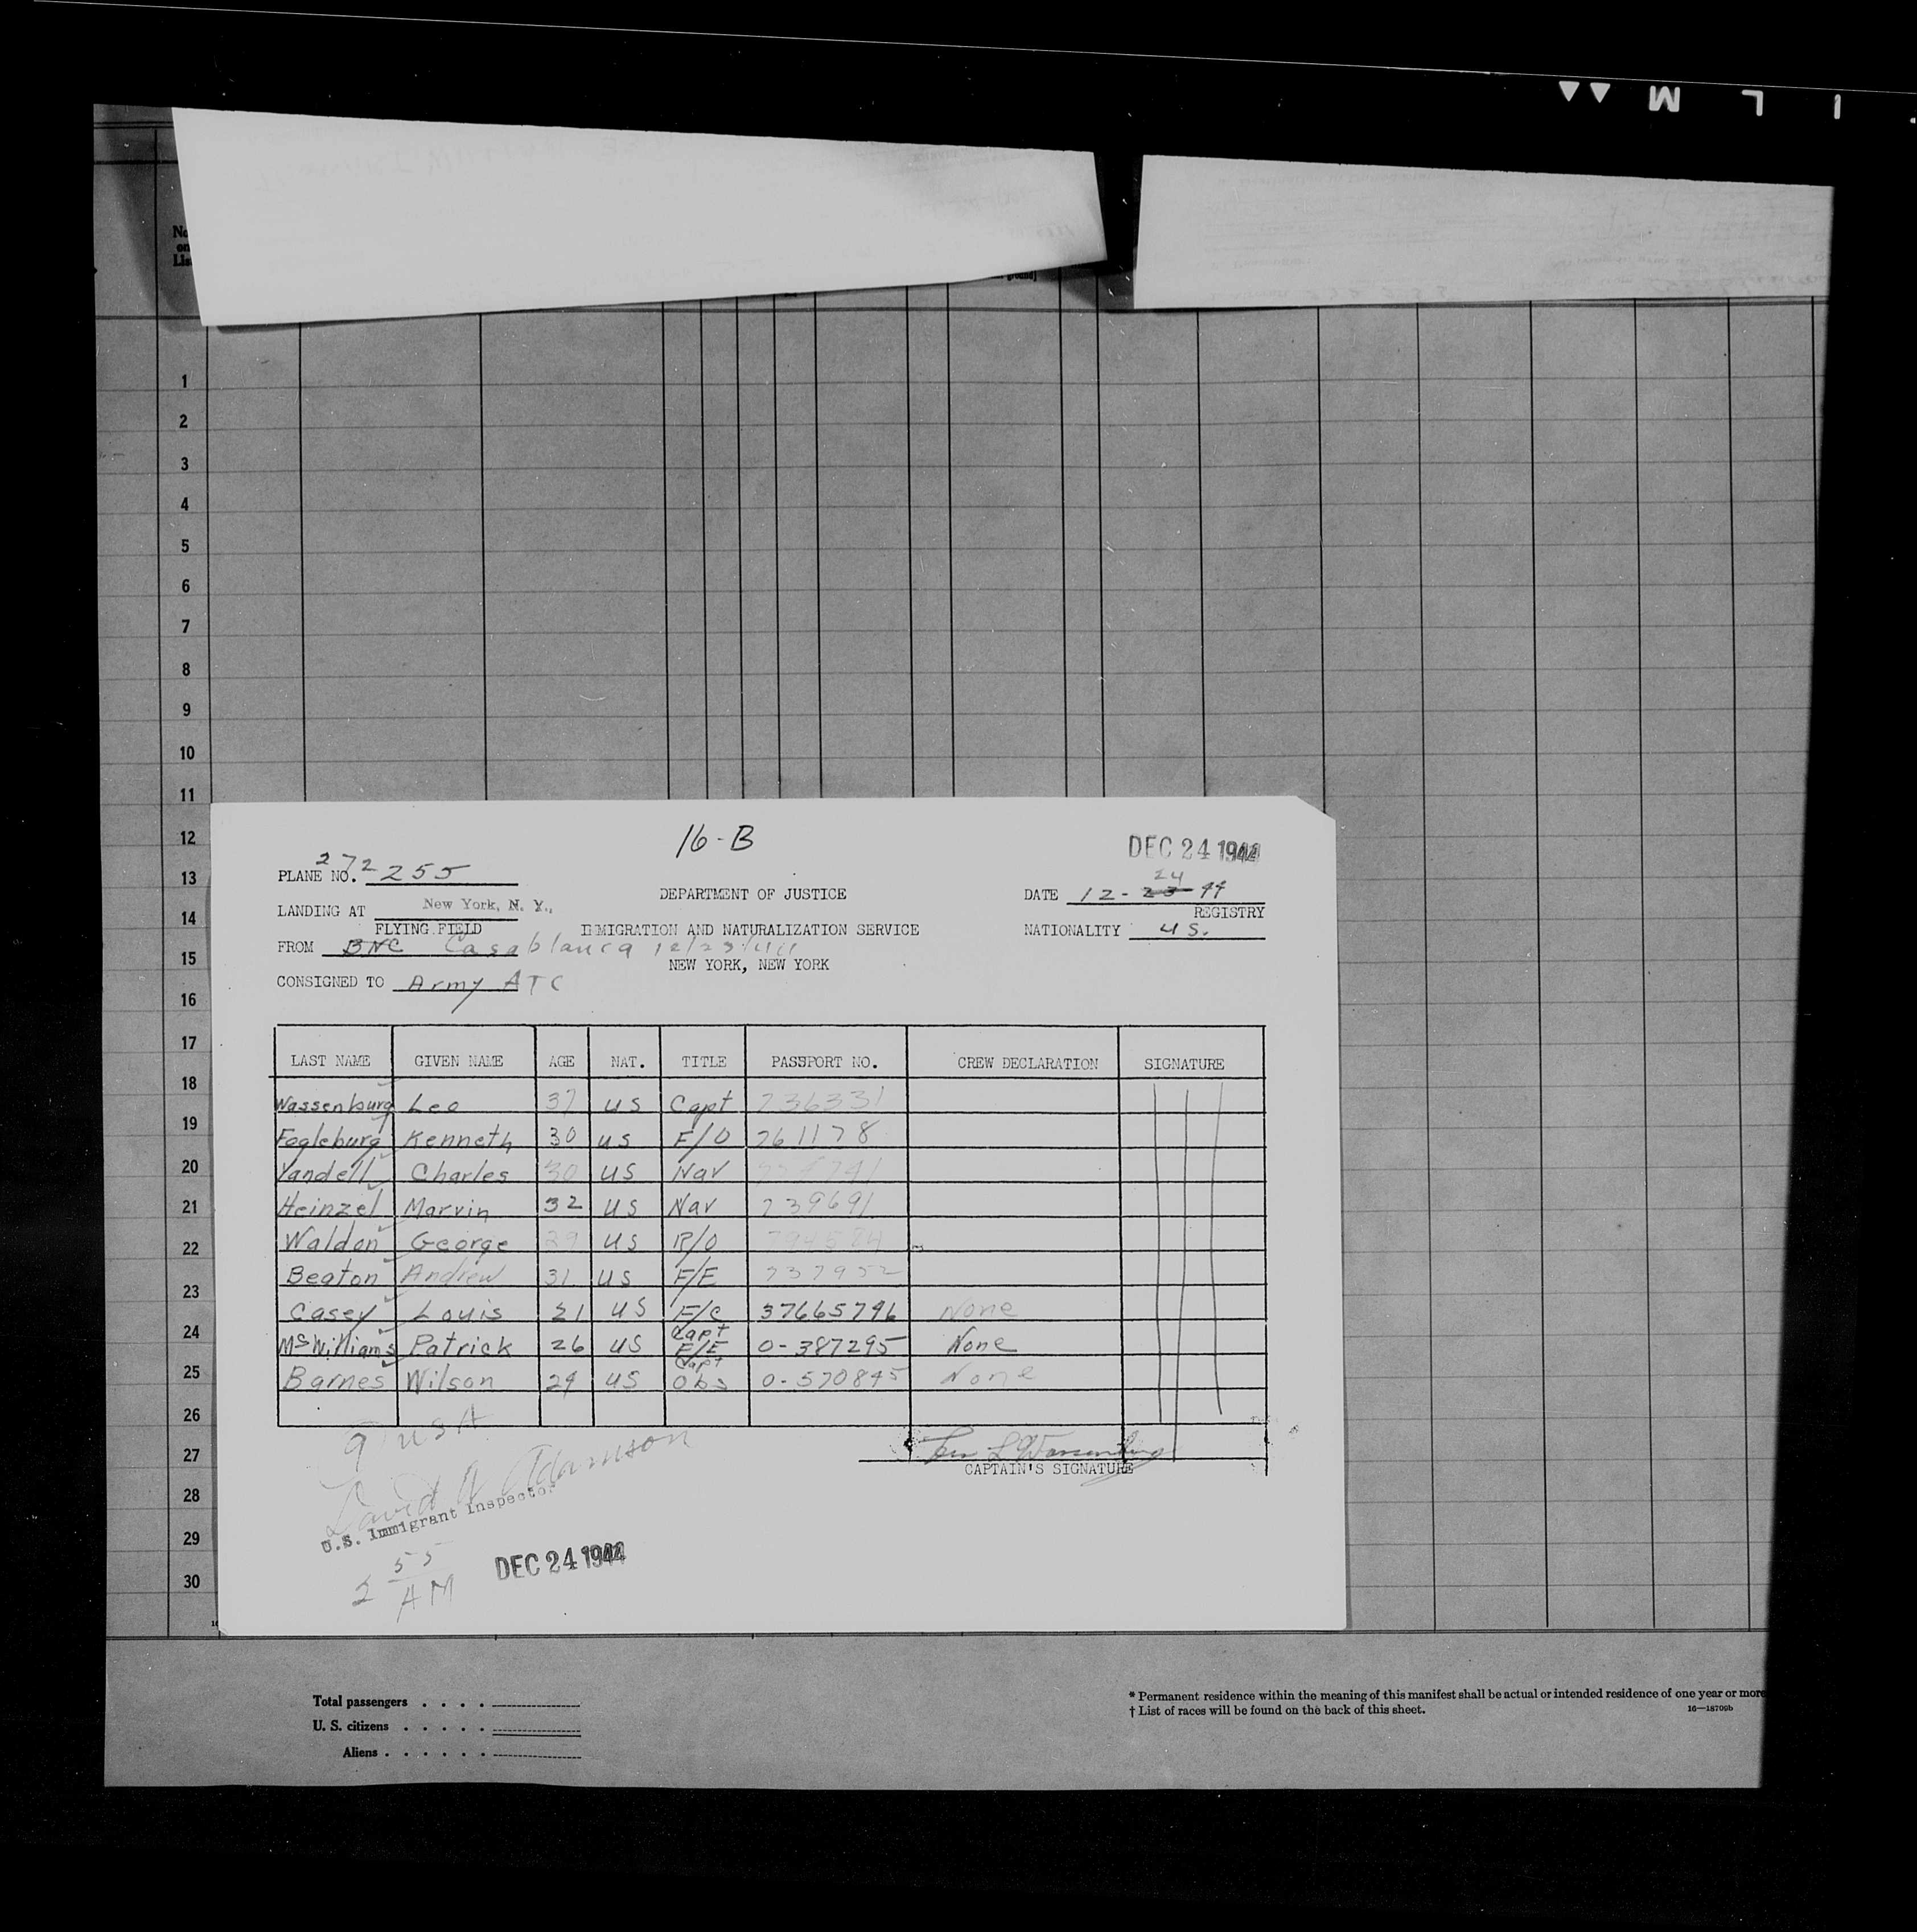 M L I
No.
on
List
ground]
1
2
3
4
5
6
7
8
9
10
11
12
13
14
15
16
17
18
19
20
21
22
23
24
25
26
27
28
29
30
16-B
DEC 24 1944
PLANE NO. 272255
DEPARTMENT OF JUSTICE
DATE 12-23 24 44
LANDING AT New York, N. Y.,
REGISTRY
FLYING FIELD
IMMIGRATION AND NATURALIZATION SERVICE
NATIONALITY US.
FROM BNC Casablanca 12/23/44
NEW YORK, NEW YORK
CONSIGNED TO Army ATC
LAST NAME GIVEN NAME AGE NAT. TITLE PASSPORT NO. CREW DECLARATION SIGNATURE
Wassenburg Leo 37 US Capt 736331
Fogleburg Kenneth 30 US F/O 761178
Yandell Charles 30 US Nav
Heinzel Marvin 32 US Nav 739691
Waldon George 29 US R/O
Beaton Andrew 31 US F/E 737952
Casey Louis 21 US F/C 37665796 None
McWilliams Patrick 26 US Capt F/E 0-387295 None
Barnes Wilson 29 US Capt Obs 0-570845 None
9 USA
Leo L Wassenburg
CAPTAIN'S SIGNATURE
David A Adamson
U.S. Immigrant Inspector
2 55 AM
DEC 24 1944
Total passengers . . . .
U. S. citizens . . . . .
Aliens . . . . . .
* Permanent residence within the meaning of this manifest shall be actual or intended residence of one year or more
† List of races will be found on the back of this sheet.
16—18709b